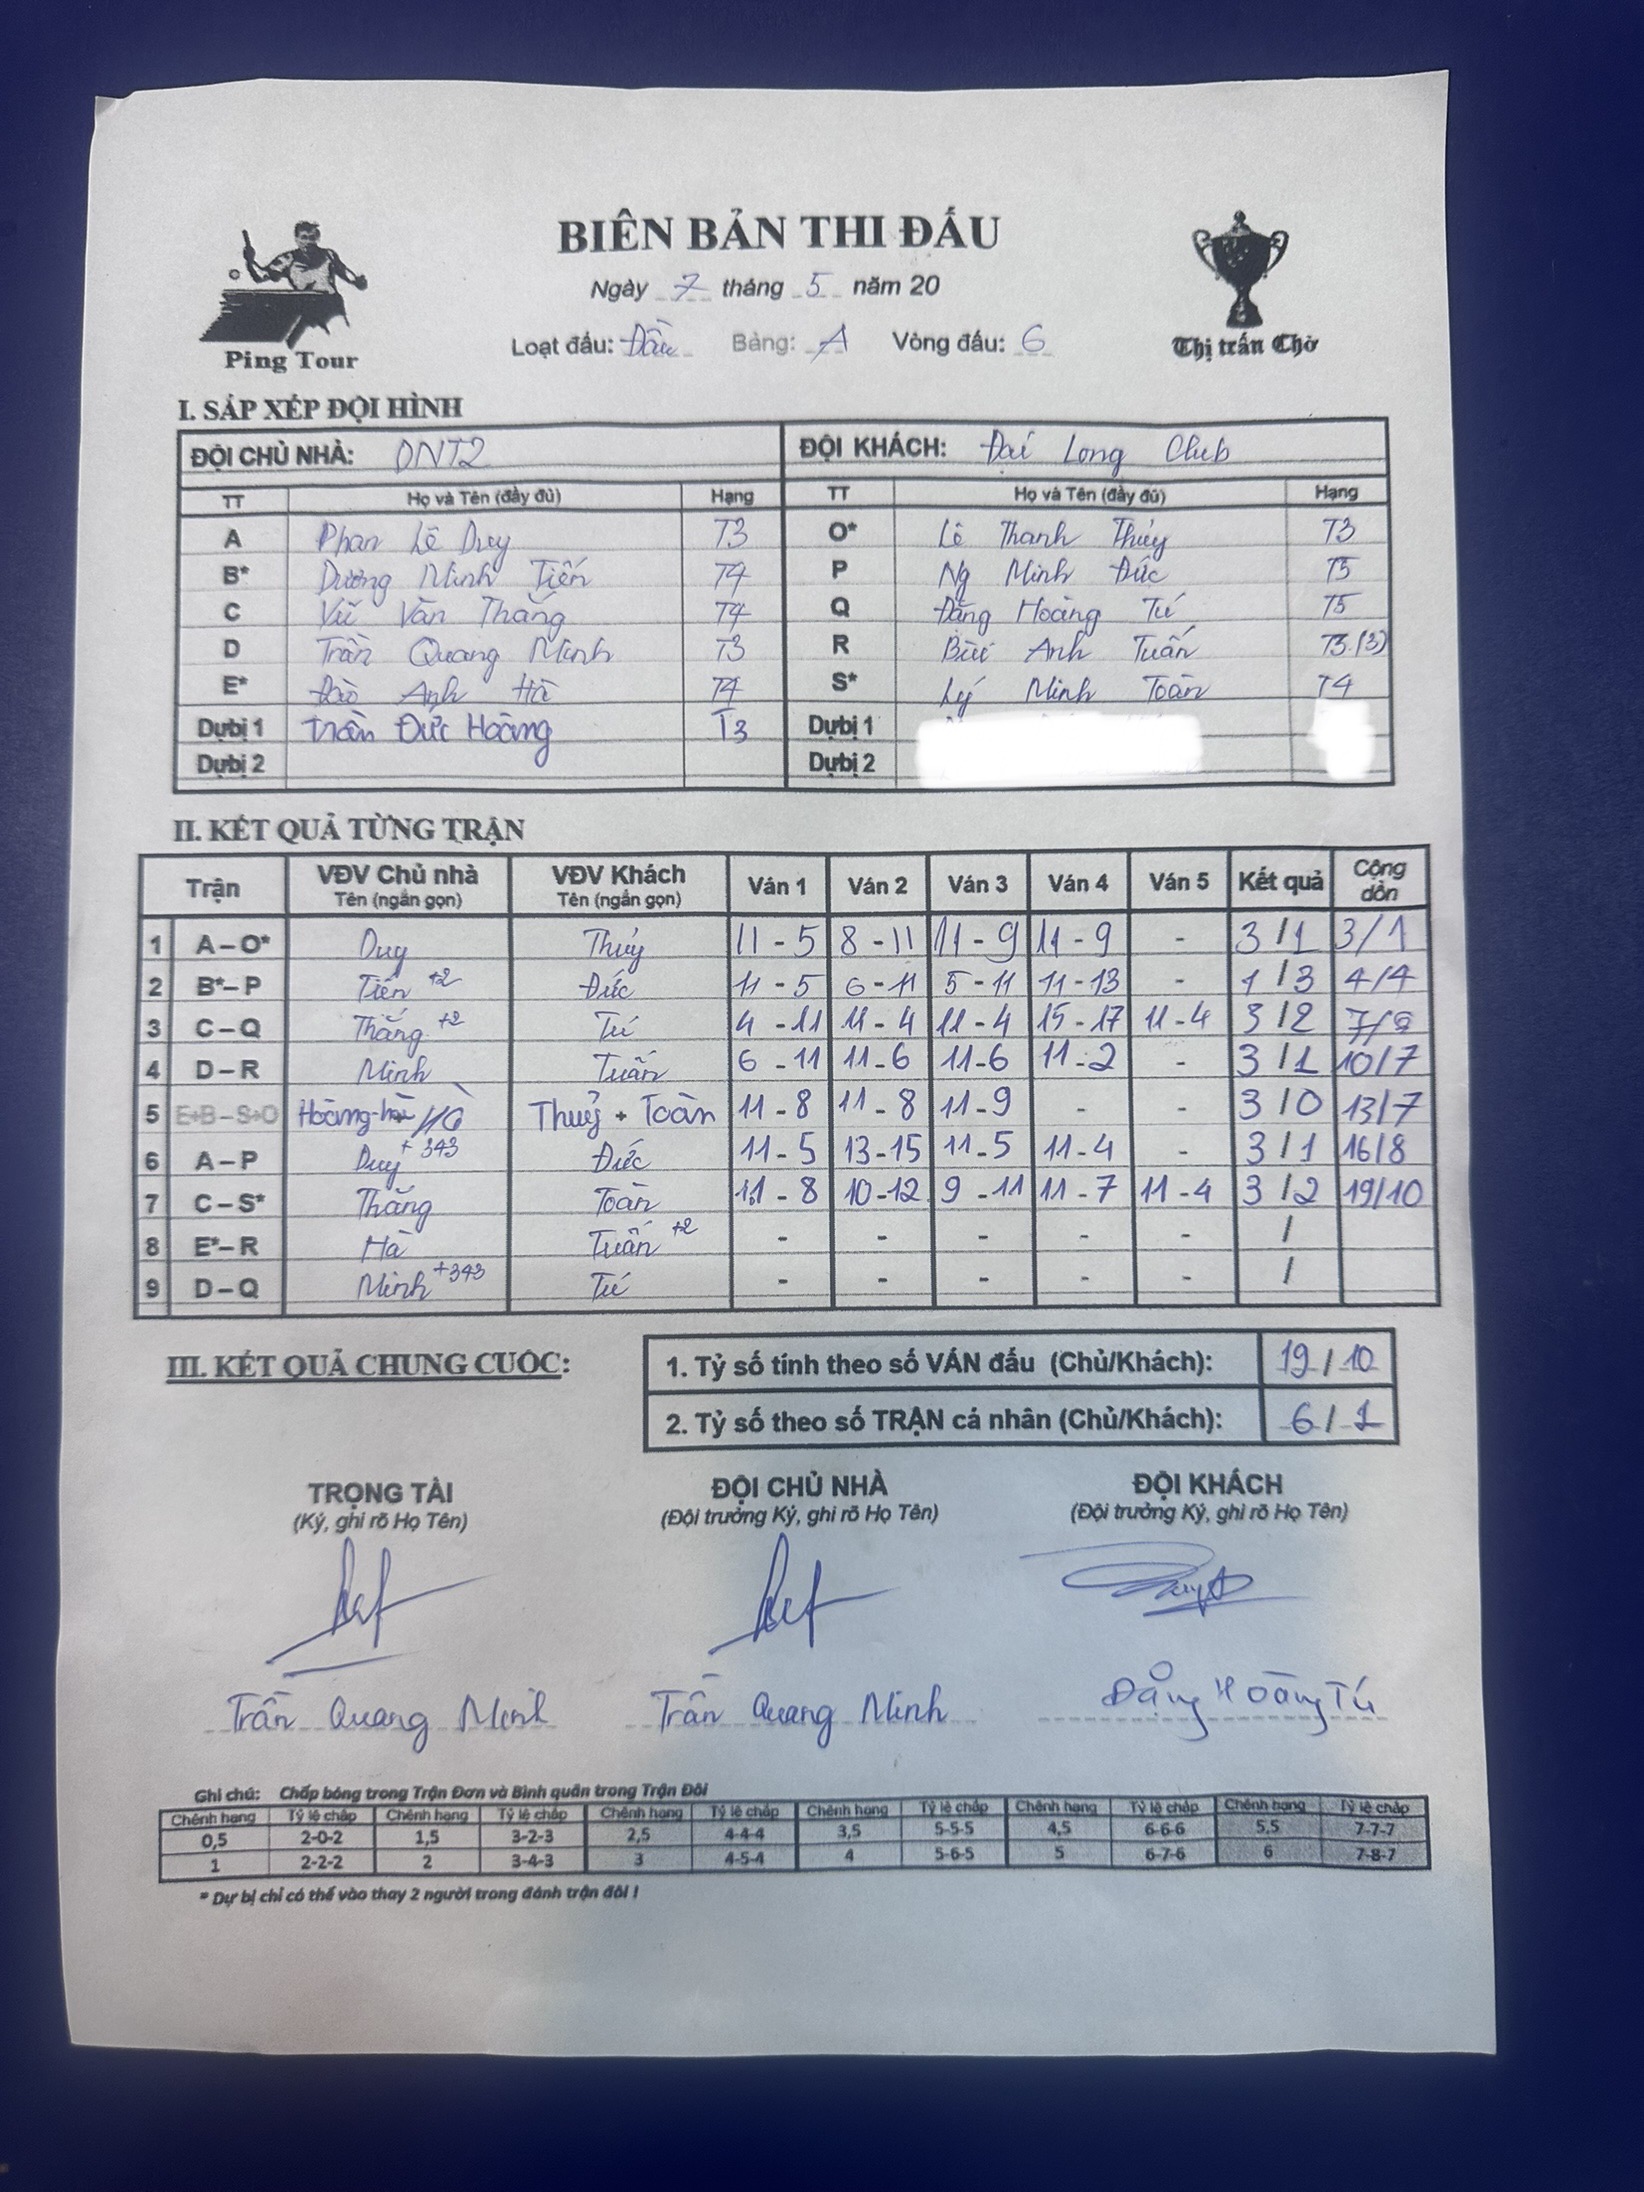 BIÊN BẢN THI ĐẤU
Ngày 7 tháng 5 năm 20
Loạt đấu: Đầu Bảng: A Vòng đấu: 6
Ping Tour
Thị trấn Chờ
I. SẮP XẾP ĐỘI HÌNH
ĐỘI CHỦ NHÀ: ĐỘI KHÁCH: Đại Long Club
TT Họ và Tên (đầy đủ) Hạng TT Họ và Tên (đầy đủ) Hạng
A Phan Lê Duy T3 O* Lê Thanh Thủy T3
B* Dương Minh Tiến T4 P Ng Minh Đức T5
C Vũ Văn Thắng T4 Q Đặng Hoàng Tú T5
D Trần Quang Minh T3 R Bùi Anh Tuấn T3.(3)
E* Đào Anh Hà T4 S* Lý Minh Toàn T4
Dự bị 1 Trần Đức Hoàng T3 Dự bị 1
Dự bị 2 Dự bị 2
II. KẾT QUẢ TỪNG TRẬN
Trận VĐV Chủ nhà Tên (ngắn gọn) VĐV Khách Tên (ngắn gọn) Ván 1 Ván 2 Ván 3 Ván 4 Ván 5 Kết quả Cộng dồn
1 A – O* Duy Thủy 11 - 5 8 - 11 11 - 9 11 - 9 - 3 / 1 3/1
2 B*– P Tiến +2 Đức 11 - 5 6 - 11 5 - 11 11 - 13 - 1 / 3 4/4
3 C – Q Thắng +2 Tú 4 - 11 11 - 4 11 - 4 15 - 17 11 - 4 3 / 2
4 D – R Minh Tuấn 6 - 11 11 - 6 11 - 6 11 - 2 - 3 / 1 10/7
5 E+B – S+O Hoàng- Hà Thuỷ + Toàn 11 - 8 11 - 8 11 - 9 - - 3 / 0 13/7
6 A – P Duy + 343 Đức 11 - 5 13 - 15 11 - 5 11 - 4 - 3 / 1 16/8
7 C – S* Thắng Toàn 11 - 8 10 - 12 9 - 11 11 - 7 11 - 4 3 / 2 19/10
8 E*– R Hà Tuấn +2 - - - - - /
9 D – Q Minh +343 Tú - - - - - /
III. KẾT QUẢ CHUNG CUỘC:
1. Tỷ số tính theo số VÁN đấu (Chủ/Khách): 19 / 10
2. Tỷ số theo số TRẬN cá nhân (Chủ/Khách): 6 / 1
TRỌNG TÀI ĐỘI CHỦ NHÀ ĐỘI KHÁCH
(Ký, ghi rõ Họ Tên) (Đội trưởng Ký, ghi rõ Họ Tên) (Đội trưởng Ký, ghi rõ Họ Tên)
Trần Quang Minh Trần Quang Minh Đặng Hoàng Tú
Ghi chú: Chấp bóng trong Trận Đơn và Bình quân trong Trận Đôi
Chênh hạng Tỷ lệ chấp Chênh hạng Tỷ lệ chấp Chênh hạng Tỷ lệ chấp Chênh hạng Tỷ lệ chấp Chênh hạng Tỷ lệ chấp Chênh hạng Tỷ lệ chấp
0,5 2-0-2 1,5 3-2-3 2,5 4-4-4 3,5 5-5-5 4,5 6-6-6 5,5 7-7-7
1 2-2-2 2 3-4-3 3 4-5-4 4 5-6-5 5 6-7-6 6 7-8-7
* Dự bị chỉ có thể vào thay 2 người trong đánh trận đôi !